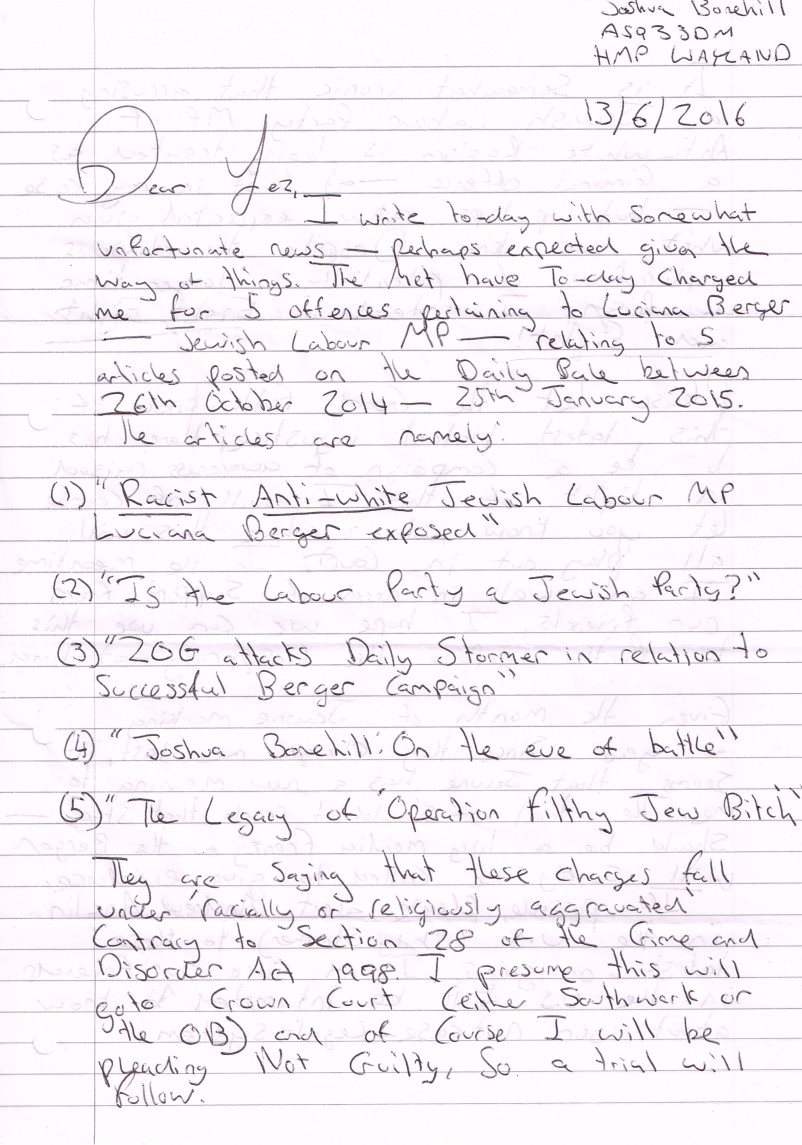 Joshua Bonehill
A5933DM
HMP WAYLAND
13/6/2016
Dear Jez,
I write to-day with Somewhat
unfortunate news — perhaps expected given the
way of things. The Met have To-day Charged
me for 5 offences pertaining to Luciana Berger
— Jewish Labour MP — relating to 5
articles posted on the Daily Bale between
26th October 2014 — 25th January 2015.
The articles are namely:
(1) "Racist Anti-white Jewish Labour MP
Luciana Berger exposed"
(2) "Is the Labour Party a Jewish Party?"
(3) "ZOG attacks Daily Stormer in relation to
Successful Berger Campaign"
(4) "Joshua Bonehill: On the eve of battle"
(5) "The Legacy of 'Operation filthy Jew Bitch'"
They are saying that these charges fall
under 'racially or religiously aggravated'
Contrary to Section 28 of the Crime and
Disorder Act 1998. I presume this will
goto Crown Court (either Southwark or
the OB) and of Course I will be
pleading Not Guilty, So a trial will
follow.